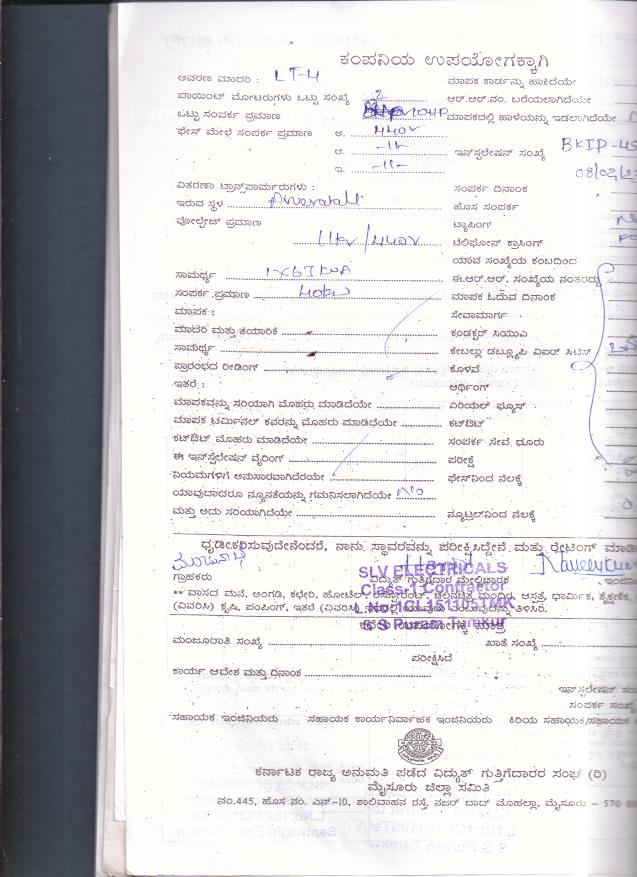 ಕಂಪನಿಯ ಉಪಯೋಗಕ್ಕಾಗಿ
ಆವರಣ ಮಾದರಿ : LT-4 ಮಾಪಕ ಕಾರ್ಡನ್ನು ಹಾಕಿದೆಯೇ
ಪಾಯಿಂಟ್ ಮೋಟರುಗಳು ಒಟ್ಟು ಸಂಖ್ಯೆ 2 ಆರ್.ಆರ್.ನಂ. ಬರೆಯಲಾಗಿದೆಯೇ
ಒಟ್ಟು ಸಂಪರ್ಕ ಪ್ರಮಾಣ 10HP ಮಾಪಕದಲ್ಲಿ ಹಾಳೆಯನ್ನು ಇಡಲಾಗಿದೆಯೇ
ಫೇಸ್ ಮೇಲೆ ಸಂಪರ್ಕ ಪ್ರಮಾಣ ಅ. 440V
ಆ. -11- ಇನ್‌ಸ್ಟಲೇಷನ್ ಸಂಖ್ಯೆ BKIP-45
ಇ. -11- 08/02/2
ವಿತರಣಾ ಟ್ರಾನ್ಸ್‌ಪಾರ್ಮರುಗಳು : ಸಂಪರ್ಕ ದಿನಾಂಕ
ಇರುವ ಸ್ಥಳ ಹೊಸ ಸಂಪರ್ಕ
ವೋಲ್ಟೇಜ್ ಪ್ರಮಾಣ ಟ್ಯಾಪಿಂಗ್
11KV/440V ಟೆಲಿಫೋನ್ ಕ್ರಾಸಿಂಗ್
ಯಾವ ಸಂಖ್ಯೆಯ ಕಂಬದಿಂದ
ಸಾಮರ್ಥ್ಯ 1X63KVA ಈ.ಆರ್.ಆರ್. ಸಂಖ್ಯೆಯ ನಂತರದ್ದು
ಸಂಪರ್ಕ ಪ್ರಮಾಣ 40KW ಮಾಪಕ ಓದುವ ದಿನಾಂಕ
ಮಾಪಕ : ಸೇವಾಮಾರ್ಗ
ಮಾದರಿ ಮತ್ತು ತಯಾರಿಕೆ ಕಂಡಕ್ಟರ್ ಸಿಯುಎ
ಸಾಮರ್ಥ್ಯ ಕೇಬಲ್ಲು ಡಬ್ಲ್ಯೂಪಿ ವಿಐರ್ ಸಿಟಿಸ್
ಪ್ರಾರಂಭದ ರೀಡಿಂಗ್ ಕೊಳವೆ
ಇತರೆ : ಆರ್ಥಿಂಗ್
ಮಾಪಕವನ್ನು ಸರಿಯಾಗಿ ಮೊಹರು ಮಾಡಿದೆಯೇ ಏರಿಯಲ್ ಫ್ಯೂಸ್
ಮಾಪಕ ಟರ್ಮಿನಲ್ ಕವರನ್ನು ಮೊಹರು ಮಾಡಿದೆಯೇ ಕಟ್‌ಔಟ್
ಕಟ್‌ಔಟ್ ಮೊಹರು ಮಾಡಿದೆಯೇ ಸಂಪರ್ಕ ಸೇವೆ, ಧೂರು
ಈ ಇನ್‌ಸ್ಟೆಲೇಷನ್ ವೈರಿಂಗ್ ಪರೀಕ್ಷೆ
ನಿಯಮಗಳಿಗೆ ಅನುಸಾರವಾಗಿದೆರಯೇ ಫೇಸ್‌ನಿಂದ ನೆಲಕ್ಕೆ
ಯಾವುಬಾದರೂ ನ್ಯೂನತೆಯನ್ನು ಗಮನಿಸಲಾಗಿದೆಯೇ NO
ಮತ್ತು ಅದು ಸರಿಯಾಗಿದೆಯೇ ನ್ಯೂಟ್ರಲ್‌ನಿಂದ ನೆಲಕ್ಕೆ
ಧೃಡೀಕರಿಸುವುದೇನೆಂದರೆ, ನಾನು ಸ್ಥಾವರವನ್ನು ಪರೀಕ್ಷಿಸಿದ್ದೇನೆ ಮತ್ತು ರೇಟಿಂಗ್
ಗ್ರಾಹಕರು ವಿದ್ಯುತ್ ಗುತ್ತಿಗೆದಾರ ಮೇಲ್ವಿಚಾರಕ
SLV ELECTRICALS
Class-1 Contractor
** ವಾಸದ ಮನೆ, ಅಂಗಡಿ, ಕಛೇರಿ, ಹೋಟೆಲ್, ರೆಸ್ಟೋರೆಂಟ್, ಚಲನಚಿತ್ರ ಮಂದಿರ, ಆಸ್ಪತ್ರೆ, ಧಾರ್ಮಿಕ, ಶೈಕ್ಷಣಿಕ,
(ವಿವರಿಸಿ) ಕೃಷಿ, ಪಂಪಿಂಗ್, ಇತರೆ (ವಿವರಿಸಿ) ತಿಳಿಸಿರಿ.
S S Puram Tumkur
ಮಂಜೂರಾತಿ ಸಂಖ್ಯೆ ಖಾತೆ ಸಂಖ್ಯೆ
ಪರೀಕ್ಷಿಸಿದೆ
ಕಾರ್ಯ ಆದೇಶ ಮತ್ತು ದಿನಾಂಕ
ಸಂಪರ್ಕ ಸಂಖ್ಯೆ
ಸಹಾಯಕ ಇಂಜಿನಿಯರು ಸಹಾಯಕ ಕಾರ್ಯನಿರ್ವಾಹಕ ಇಂಜಿನಿಯರು ಕಿರಿಯ ಸಹಾಯಕ/ಸಹಾಯಕ
ಕರ್ನಾಟಕ ರಾಜ್ಯ ಅನುಮತಿ ಪಡೆದ ವಿದ್ಯುತ್ ಗುತ್ತಿಗೆದಾರರ ಸಂಘ (ರಿ)
ಮೈಸೂರು ಜಿಲ್ಲಾ ಸಮಿತಿ
ನಂ.445, ಹೊಸ ನಂ. ಎನ್-10, ಶಾಲಿವಾಹನ ರಸ್ತೆ, ನಜರ್ ಬಾದ್ ಮೊಹಲ್ಲಾ, ಮೈಸೂರು – 570